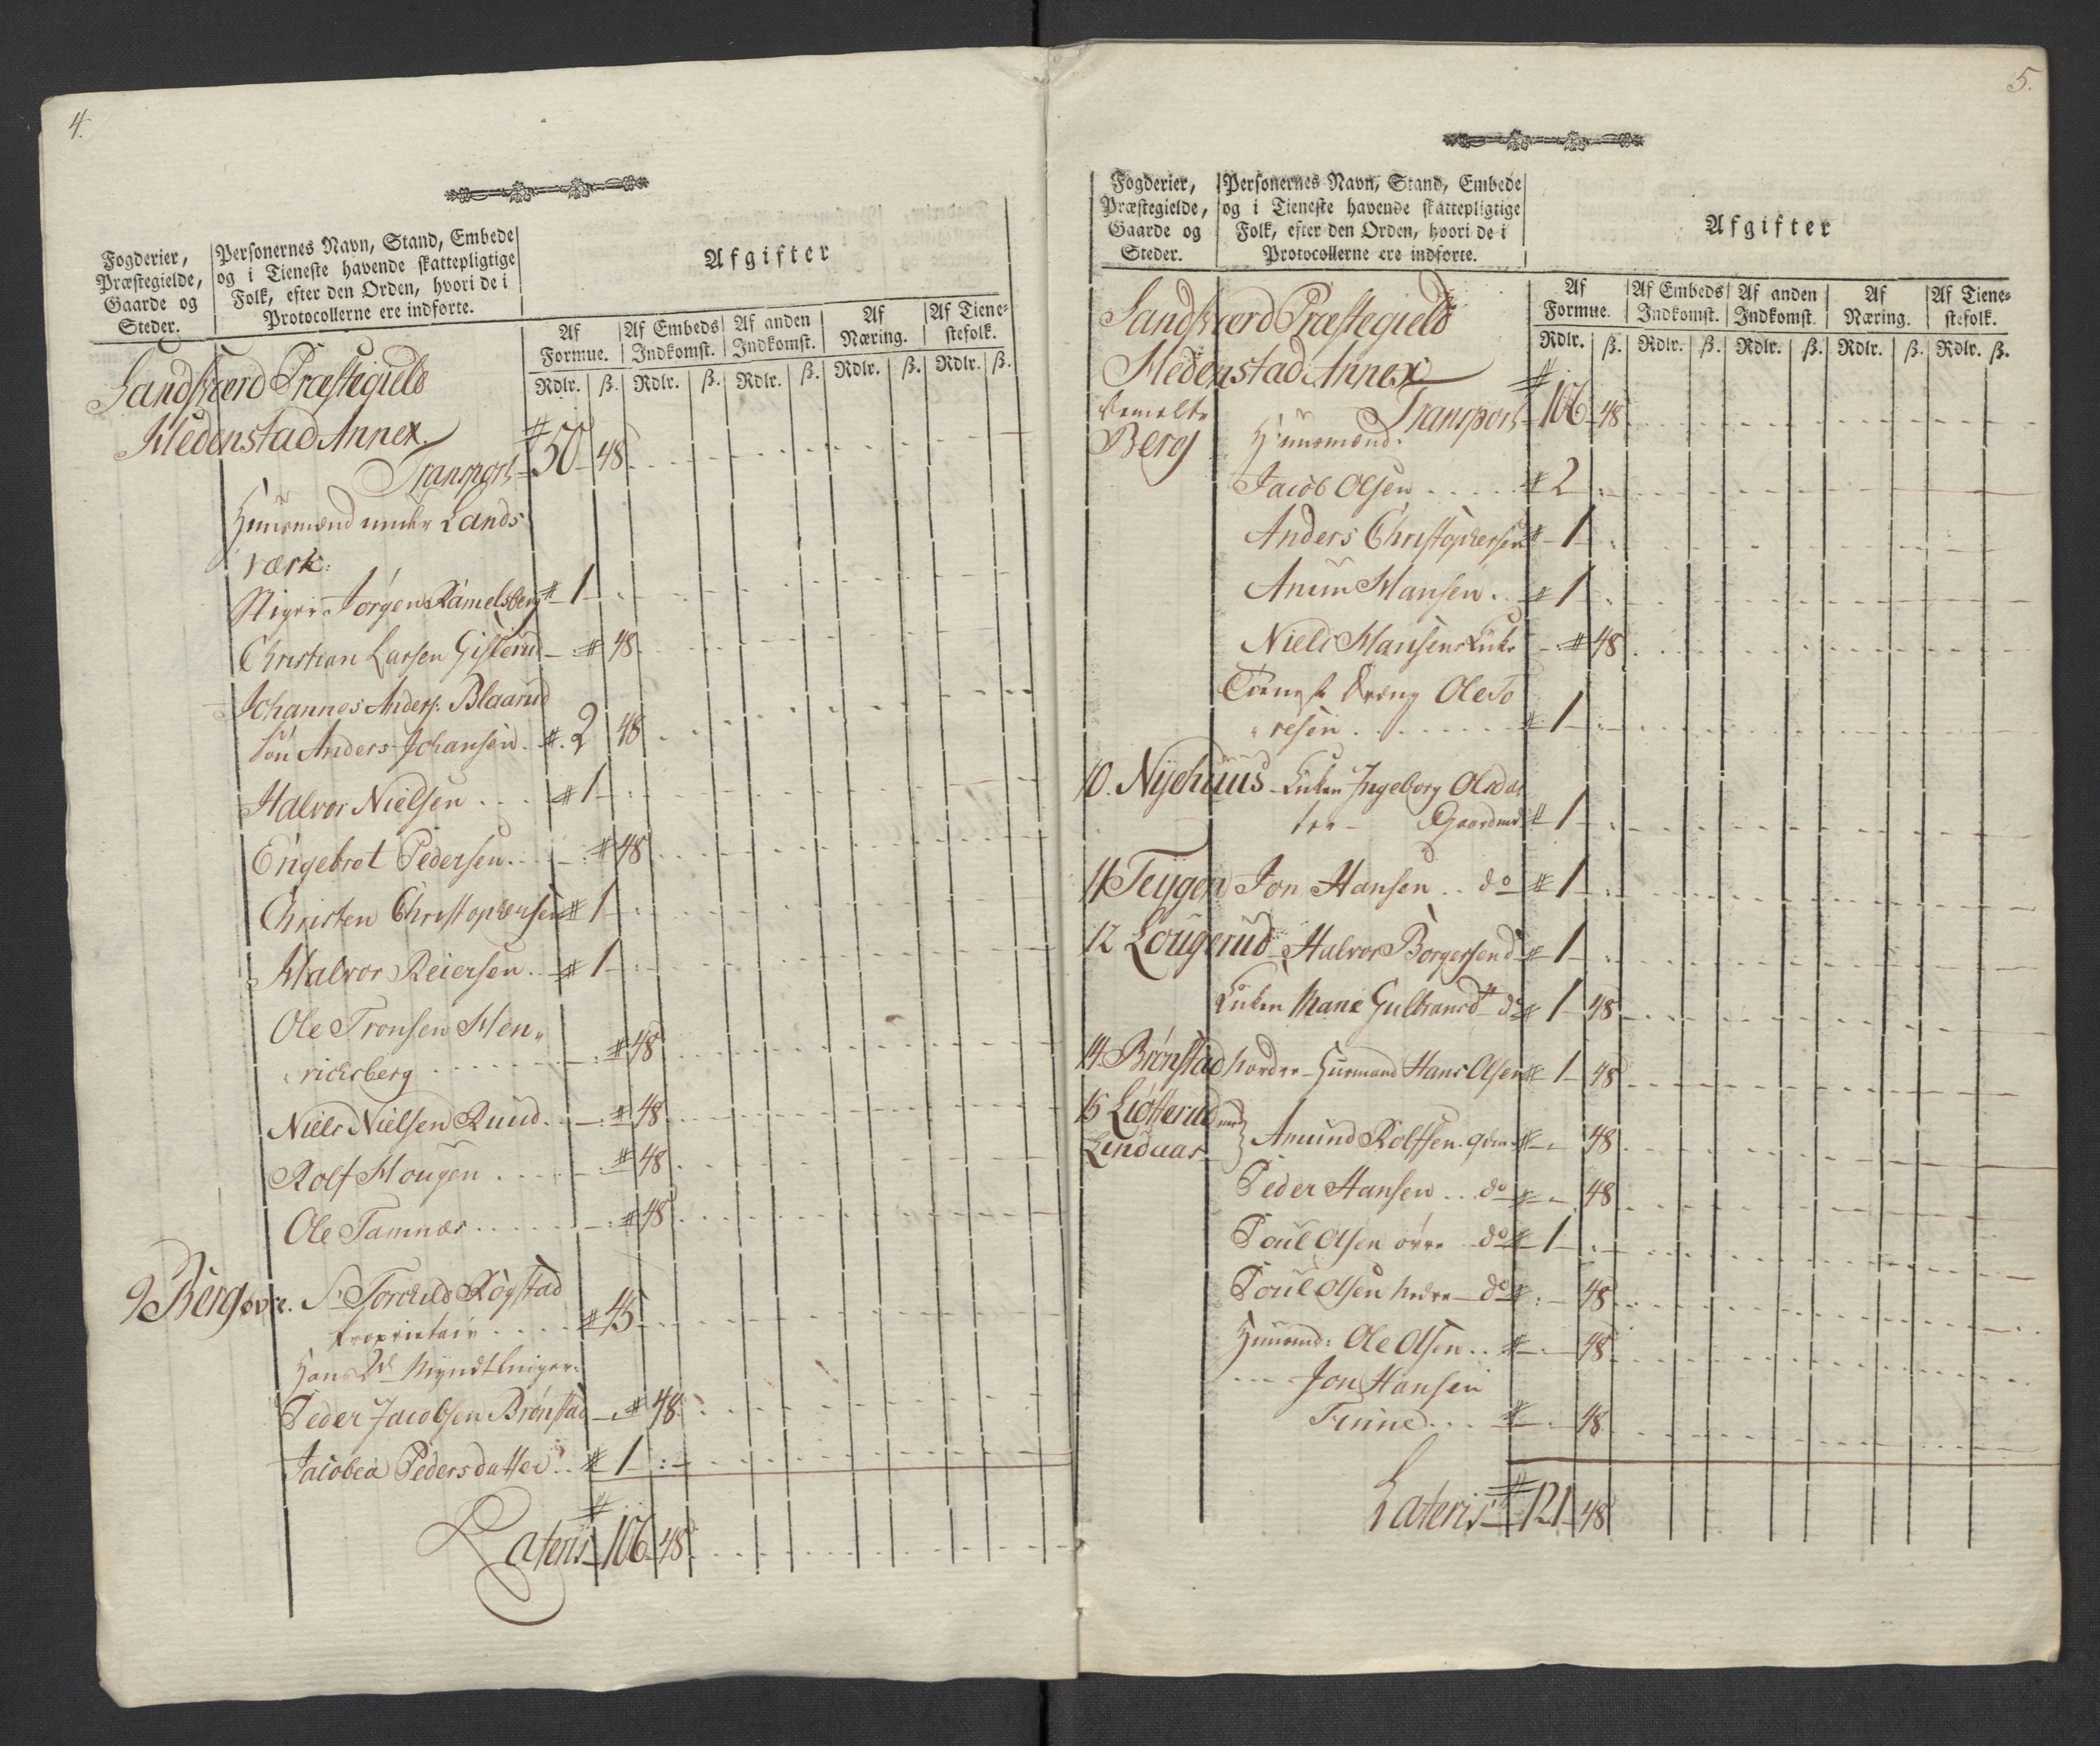 4.
Fogderier,
Præstegielde,
Gaarde og
Steder.
Personernes Navn, Stand, Embede
og i Tieneste havende skattepligtige
Folk, efter den Orden, hvori de i
Protocollerne ere indførte.
Afgifter
Af Formue.
Af Embeds Indkomst.
Af anden Indkomst.
Af Næring.
Af Tiene-stefolk.
Rdlr. ß. Rdlr. ß. Rdlr. ß. Rdlr. ß. Rdlr. ß.
Sandsværd Præstegield
Hedenstad Annex.
Transport 50 48
Huusmænd under Lands
værk:
Stiger Jørgen Ramelsberg 1
Christian Larsen Gisterud 48
Johannes Anders: Blaarud
Søn Anders Johansen 2 48
Halvor Nielsen 1
Engebret Pedersen 48
Christen Christophersen 1
Halvor Reiersen 1
Ole Tronsen Hen
richsberg 48
Niels Nielsen Ruud 48
Rolf Hougen 48
Ole Tamnæs 48
9 Berg øvre. Sr Torchild Rogstad
proprietair 45
Hans Myndtlinger:
Peder Jacobsen Brønstad 48
Jacobea Pedersdatter 1
Lateris 106 48
5.
Fogderier,
Præstegielde,
Gaarde og
Steder.
Personernes Navn, Stand, Embede
og i Tieneste havende skattepligtige
Folk, efter den Orden, hvori de i
Protocollerne ere indførte.
Afgifter
Af Formue.
Af Embeds Indkomst.
Af anden Indkomst.
Af Næring.
Af Tiene-stefolk.
Rdlr. ß. Rdlr. ß. Rdlr. ß. Rdlr. ß. Rdlr. ß.
Sandsværd Præstegield
Hedenstad Annex
Transport 106 48
Bemelte
Berg Huusmænd:
Jacob Olsen 2
Anders Christophersen 1
Anun Hansen 1
Niels Hansens Enke 48
Tienest dreng Ole To
resen 1
10. Nyehuus Enken Ingeborg Olsdat
ter Gaardmd 1
11 Teygen Jon Hansen do 1
12 Lougerud Halvor Borgersen do 1
Enken Marie Gulbransdt do 1 48
14. Brønstad nordre Husmand Hans Olsen 1 48
15 Liøsterud med
Lindaas Amund Rolfsen. gdm 48
Peder Hansen do 48
Poul Olsen øvre do 1
Poul Olsen nedre do 48
Huusmd: Ole Olsen 48
Jon Hansen
Tinne 48
Lateris 121 48